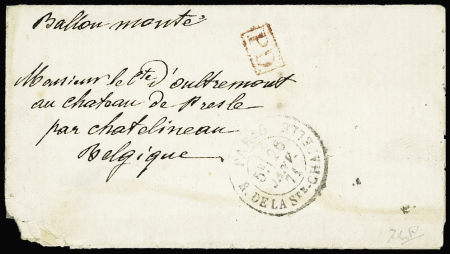 Ballon monté
P.D
Monsieur le Cte d'oultremont
au chateau de Presle
par chatelineau
Belgique
PARIS
5E /28
JANV.
71
R. DE LA STE CHAPELLE